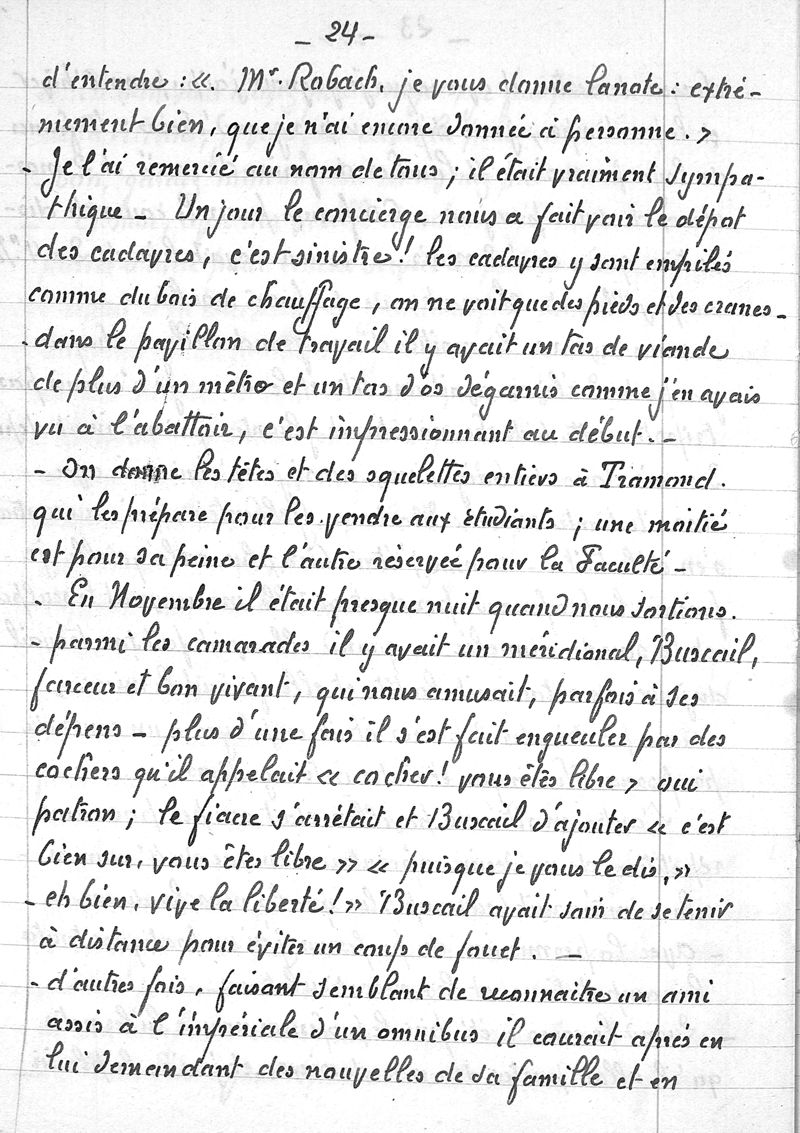 _ 24 _
d'entendre : «. Mr. Robach, je vous donne la note : extrê-
mement bien, que je n'ai encore donnée à personne. >
- Je l'ai remercié au nom de tous ; il était vraiment sympa-
thique _ Un jour le concierge nous a fait voir le dépot
des cadavres, c'est sinistre ! les cadavres y sont empilés
comme du bois de chauffage, on ne voit que des pieds et des cranes _
- dans le pavillon de travail il y avait un tas de viande
de plus d'un mètre et un tas d'os dégarnis comme j'en avais
vu à l'abattoir, c'est impressionnant au début. _
- on donne les têtes et des squelettes entiers à Tramond.
qui les prépare pour les vendre aux étudiants ; une moitié
est pour sa peine et l'autre réservée pour la Faculté _
- En Novembre il était presque nuit quand nous sortions.
- parmi les camarades il y avait un méridional, Buscail,
farceur et bon vivant, qui nous amusait, parfois à ses
dépens _ plus d'une fois il s'est fait engueuler par des
cochers qu'il appelait « cocher ! vous êtes libre > oui
patron ; le fiacre s'arrêtait et Buscail d'ajouter « c'est
bien sur, vous êtes libre » « puisque je vous le dis, »
- eh bien, vive la liberté ! » Buscail avait soin de se tenir
à distance pour éviter un coup de fouet. _
- d'autres fois, faisant semblant de reconnaitre un ami
assis à l'impériale d'un omnibus il courait après en
lui demandant des nouvelles de sa famille et en